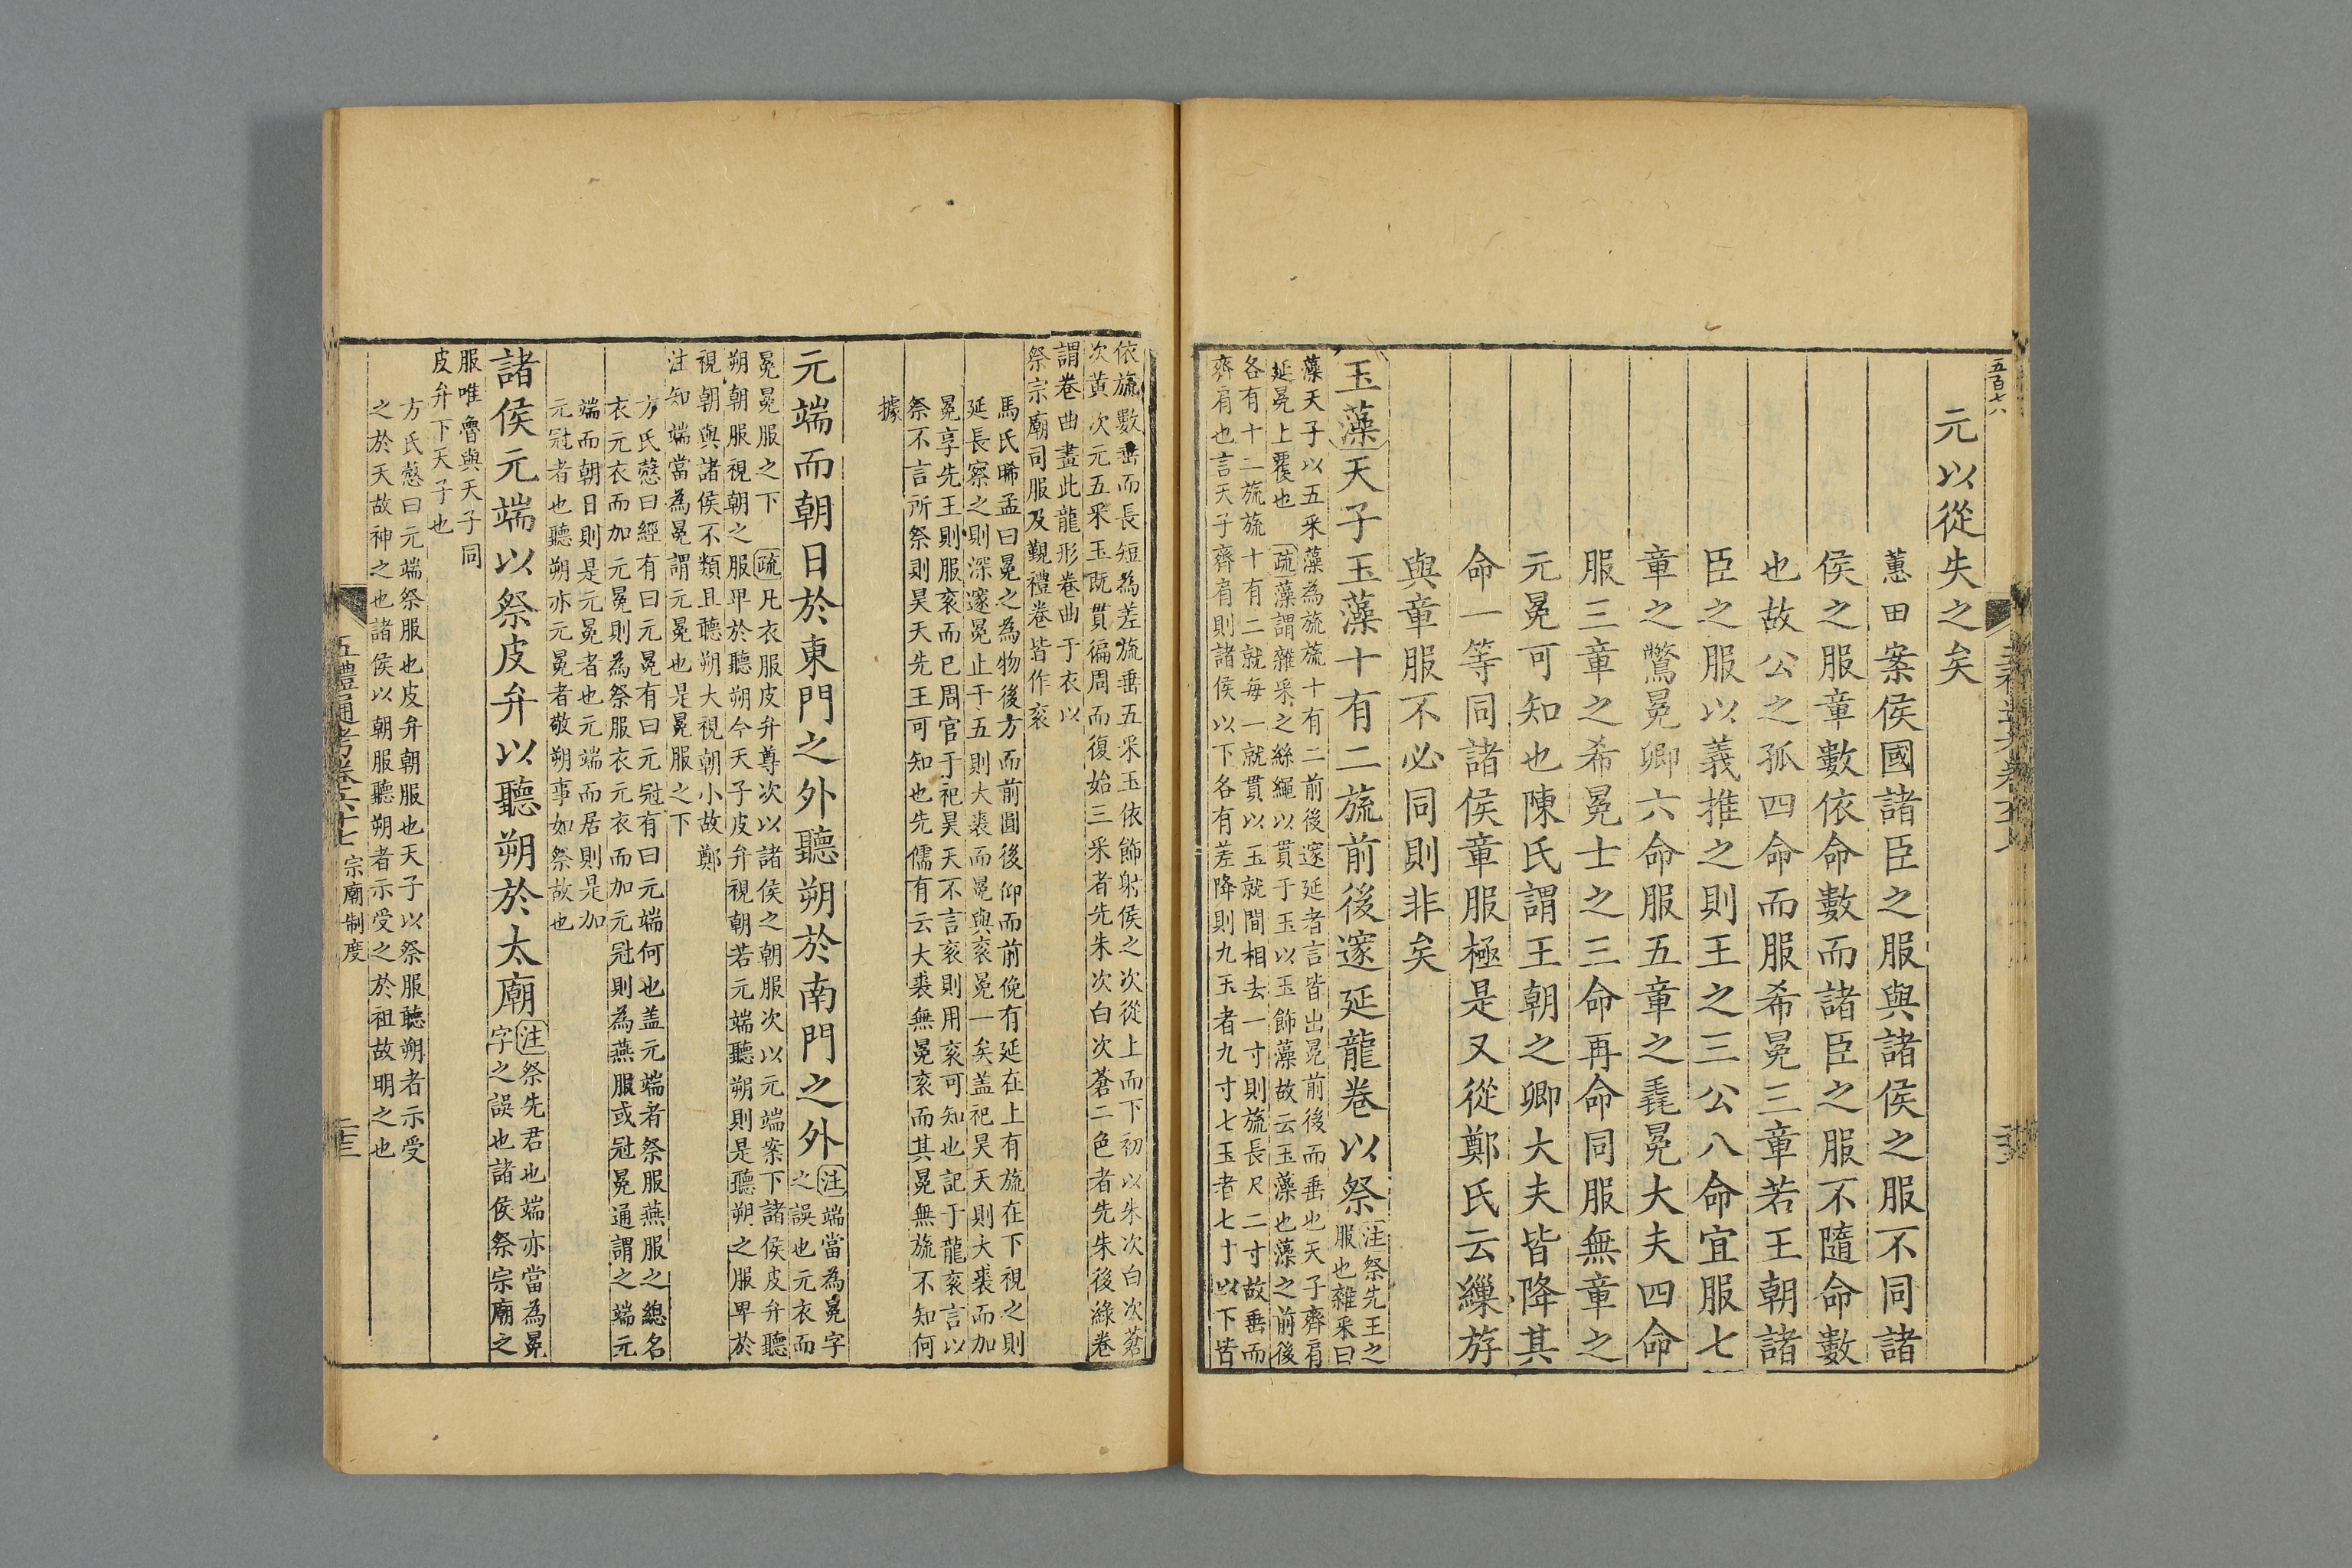 五百七八
元以從失之矣
蕙田案侯國諸臣之服與諸侯之服不同諸
侯之服章數依命數而諸臣之服不隨命數
也故公之孤四命而服希冕三章若王朝諸
臣之服以義推之則王之三公八命宜服七
章之鷩冕卿六命服五章之毳冕大夫四命
服三章之希冕士之三命再命同服無章之
元冕可知也陳氏謂王朝之卿大夫皆降其
命一等同諸侯章服極是又從鄭氏云繅斿
與章服不必同則非矣
玉藻天子玉藻十有二旒前後邃延龍卷以祭
注祭先王之
服也雜采曰
藻天子以五采藻為旒旒十有二前後邃延者言皆出冕前後而垂也天子齊肩
延冕上覆也 疏藻謂雜采之絲繩以貫于玉以玉飾藻故云玉藻也藻之前後
各有十二旒旒十有二就每一就貫以玉就間相去一寸則旒長尺二寸故垂而
齊肩也言天子齊肩則諸侯以下各有差降則九玉者九寸七玉者七寸以下皆
依旒數垂而長短為差旒垂五采玉依飾射侯之次從上而下初以朱次白次蒼
次黃次元五采玉既貫徧周而復始三采者先朱次白次蒼二色者先朱後綠卷
謂卷曲畫此龍形卷曲于衣以
祭宗廟司服及覲禮卷皆作袞
馬氏晞孟曰冕之為物後方而前圓後仰而前俛有延在上有旒在下視之則
延長察之則深邃冕止于五則大裘而冕與袞冕一矣盖祀昊天則大裘而加
冕享先王則服袞而已周官于祀昊天不言袞則用袞可知也記于龍袞言以
祭不言所祭則昊天先王可知也先儒有云大裘無冕袞而其冕無旒不知何
據
元端而朝日於東門之外聽朔於南門之外
注端當為冕字
之誤也元衣而
冕冕服之下 疏凡衣服皮弁尊次以諸侯之朝服次以元端案下諸侯皮弁聽
朔朝服視朝之服卑於聽朔今天子皮弁視朝若元端聽朔則是聽朔之服卑於
視朝與諸侯不類且聽朔大視朝小故鄭
注知端當為冕謂元冕也是冕服之下
方氏慤曰經有曰元冕有曰元冠有曰元端何也盖元端者祭服燕服之總名
衣元衣而加元冕則為祭服衣元衣而加元冠則為燕服或冠冕通謂之端元
端而朝日則是元冕者也元端而居則是加
元冠者也聽朔亦元冕者敬朔事如祭故也
諸侯元端以祭皮弁以聽朔於太廟
注祭先君也端亦當為冕
字之誤也諸侯祭宗廟之
服唯魯與天子同
皮弁下天子也
方氏慤曰元端祭服也皮弁朝服也天子以祭服聽朔者示受
之於天故神之也諸侯以朝服聽朔者示受之於祖故明之也
五禮通考卷六十七 宗廟制度